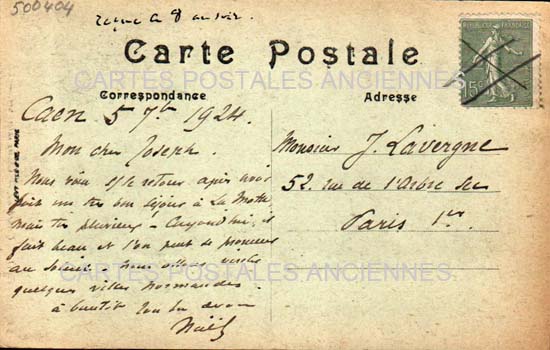 500404
reçue le 8 au soir.
Carte Postale
CARTES POSTALES ANCIENNES
Correspondance
Adresse
Caen 5 7bre 1924.
Mon cher Joseph.
Nous voici s/le retour après avoir
fait un très bon séjour à La Motte
mais très pluvieux! Aujourd'hui, il
fait beau et l'on peut se promener
au soleil - nous allons visiter
quelques villes normandes.
à bientôt
Noël
Monsieur J. Lavergne
52. rue de l'Arbre Sec
Paris 1er
CARTES POSTALES ANCIENNES